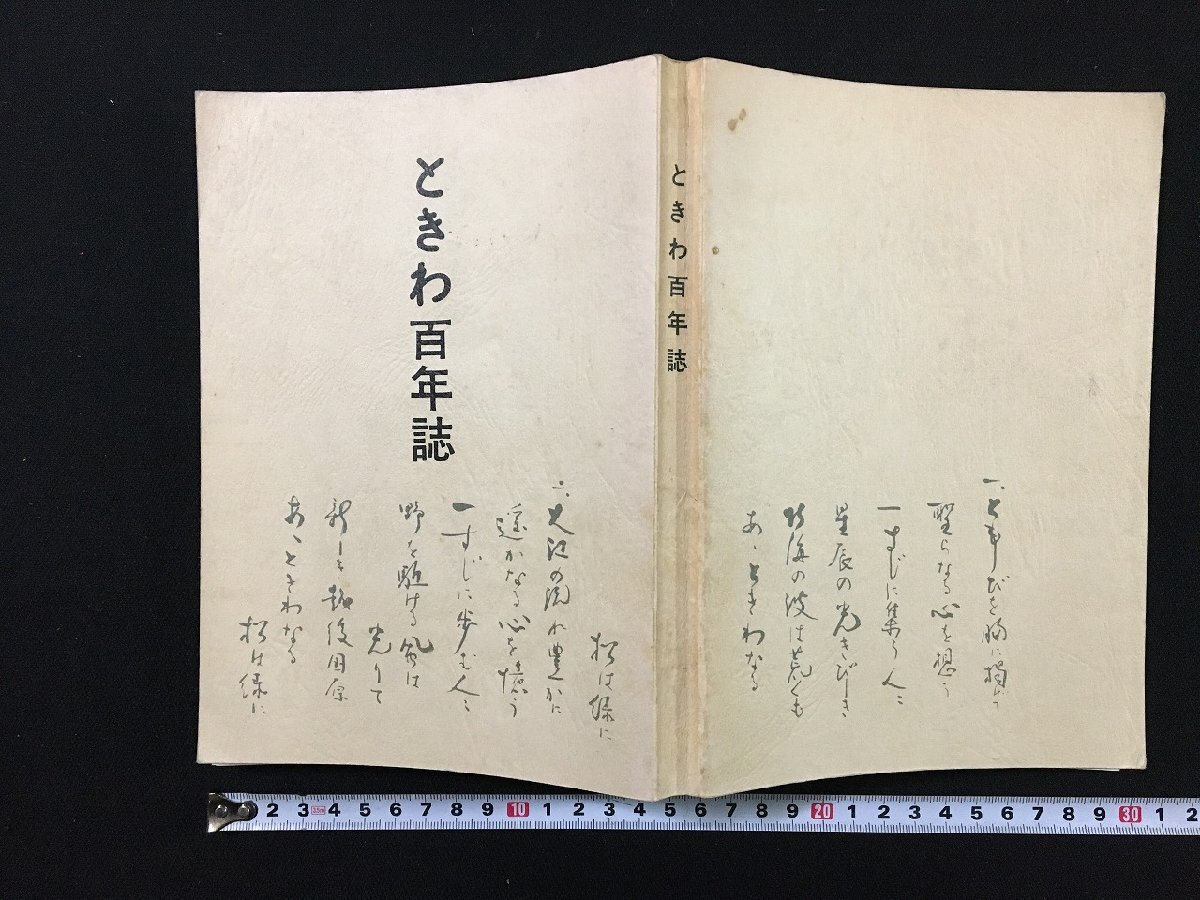 ときわ百年誌
ときわ百年誌
一、ともしびを胸に掲げ
聖らなる心を想う
一すじに集う人々
星辰の光きびしき
北海の波は荒くも
あゝときわなる
松は緑に
二、大江の流れ豊かに
遥かなる心を憶う
一すじに歩む人々
野を駈ける風は
光りて
新しき越後田原
あゝときわなる
松は緑に
2 3 3.5m 4 5 6 7 8 9 10 1 2 3 4 5 6 7 8 9 20 1 2 3 4 5 6 7 8 9 30 1 2